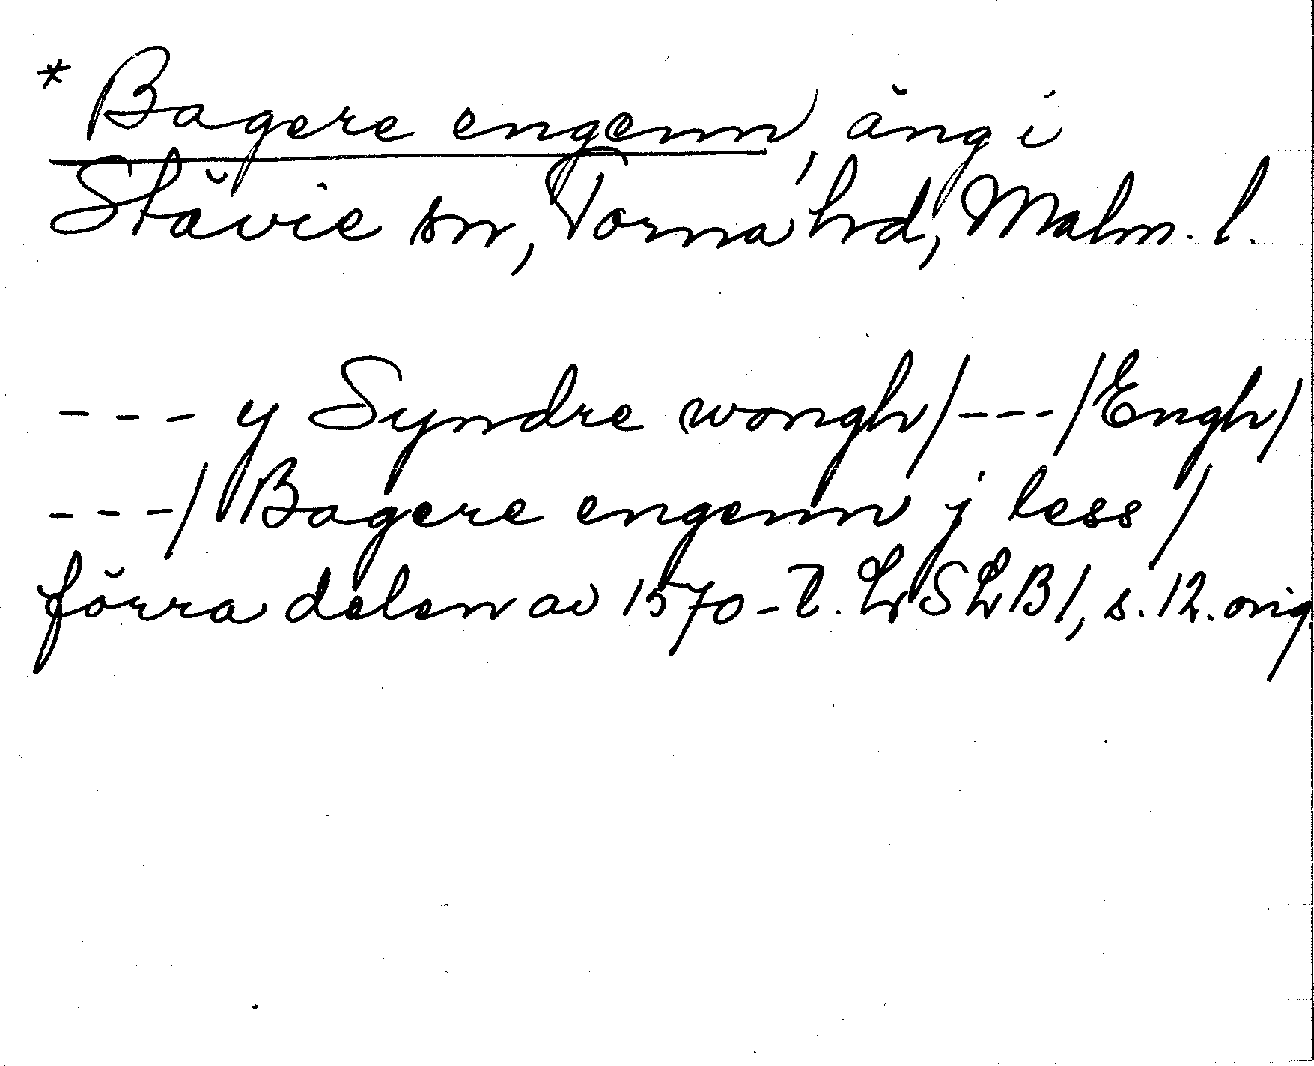 * Bagere engenn, äng i
Stävie sn, Torna hd, Malm. l.
--- y Syndre wongh/---/Engh/
---/ Bagere engenn j less /
förra delen av 1570-t. LSLB1, s. 12. orig.